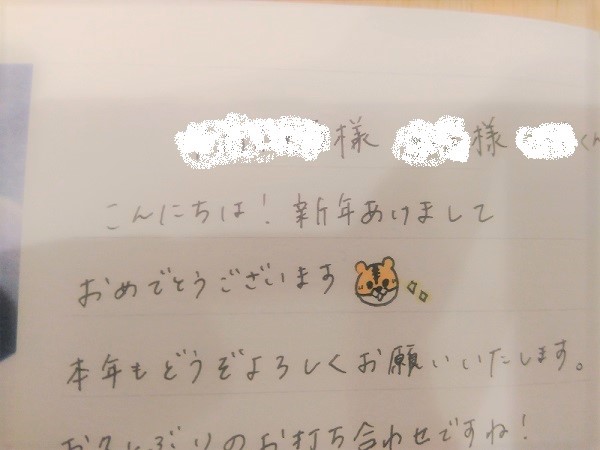 様 様 くん
こんにちは！新年あけまして
おめでとうございます
本年もどうぞよろしくお願いいたします。
お久しぶりのお打ち合わせですね！